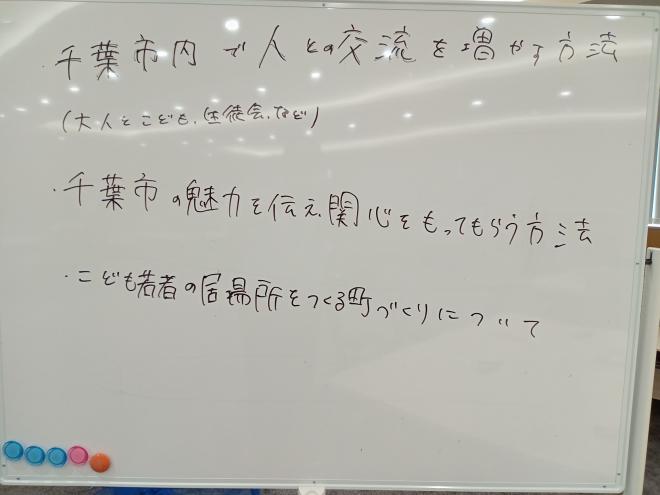 ・千葉市内で人との交流を増やす方法
(大人とこども、生徒会、など)
・千葉市の魅力を伝え関心をもってもらう方法
・こども若者の居場所をつくる町づくりについて